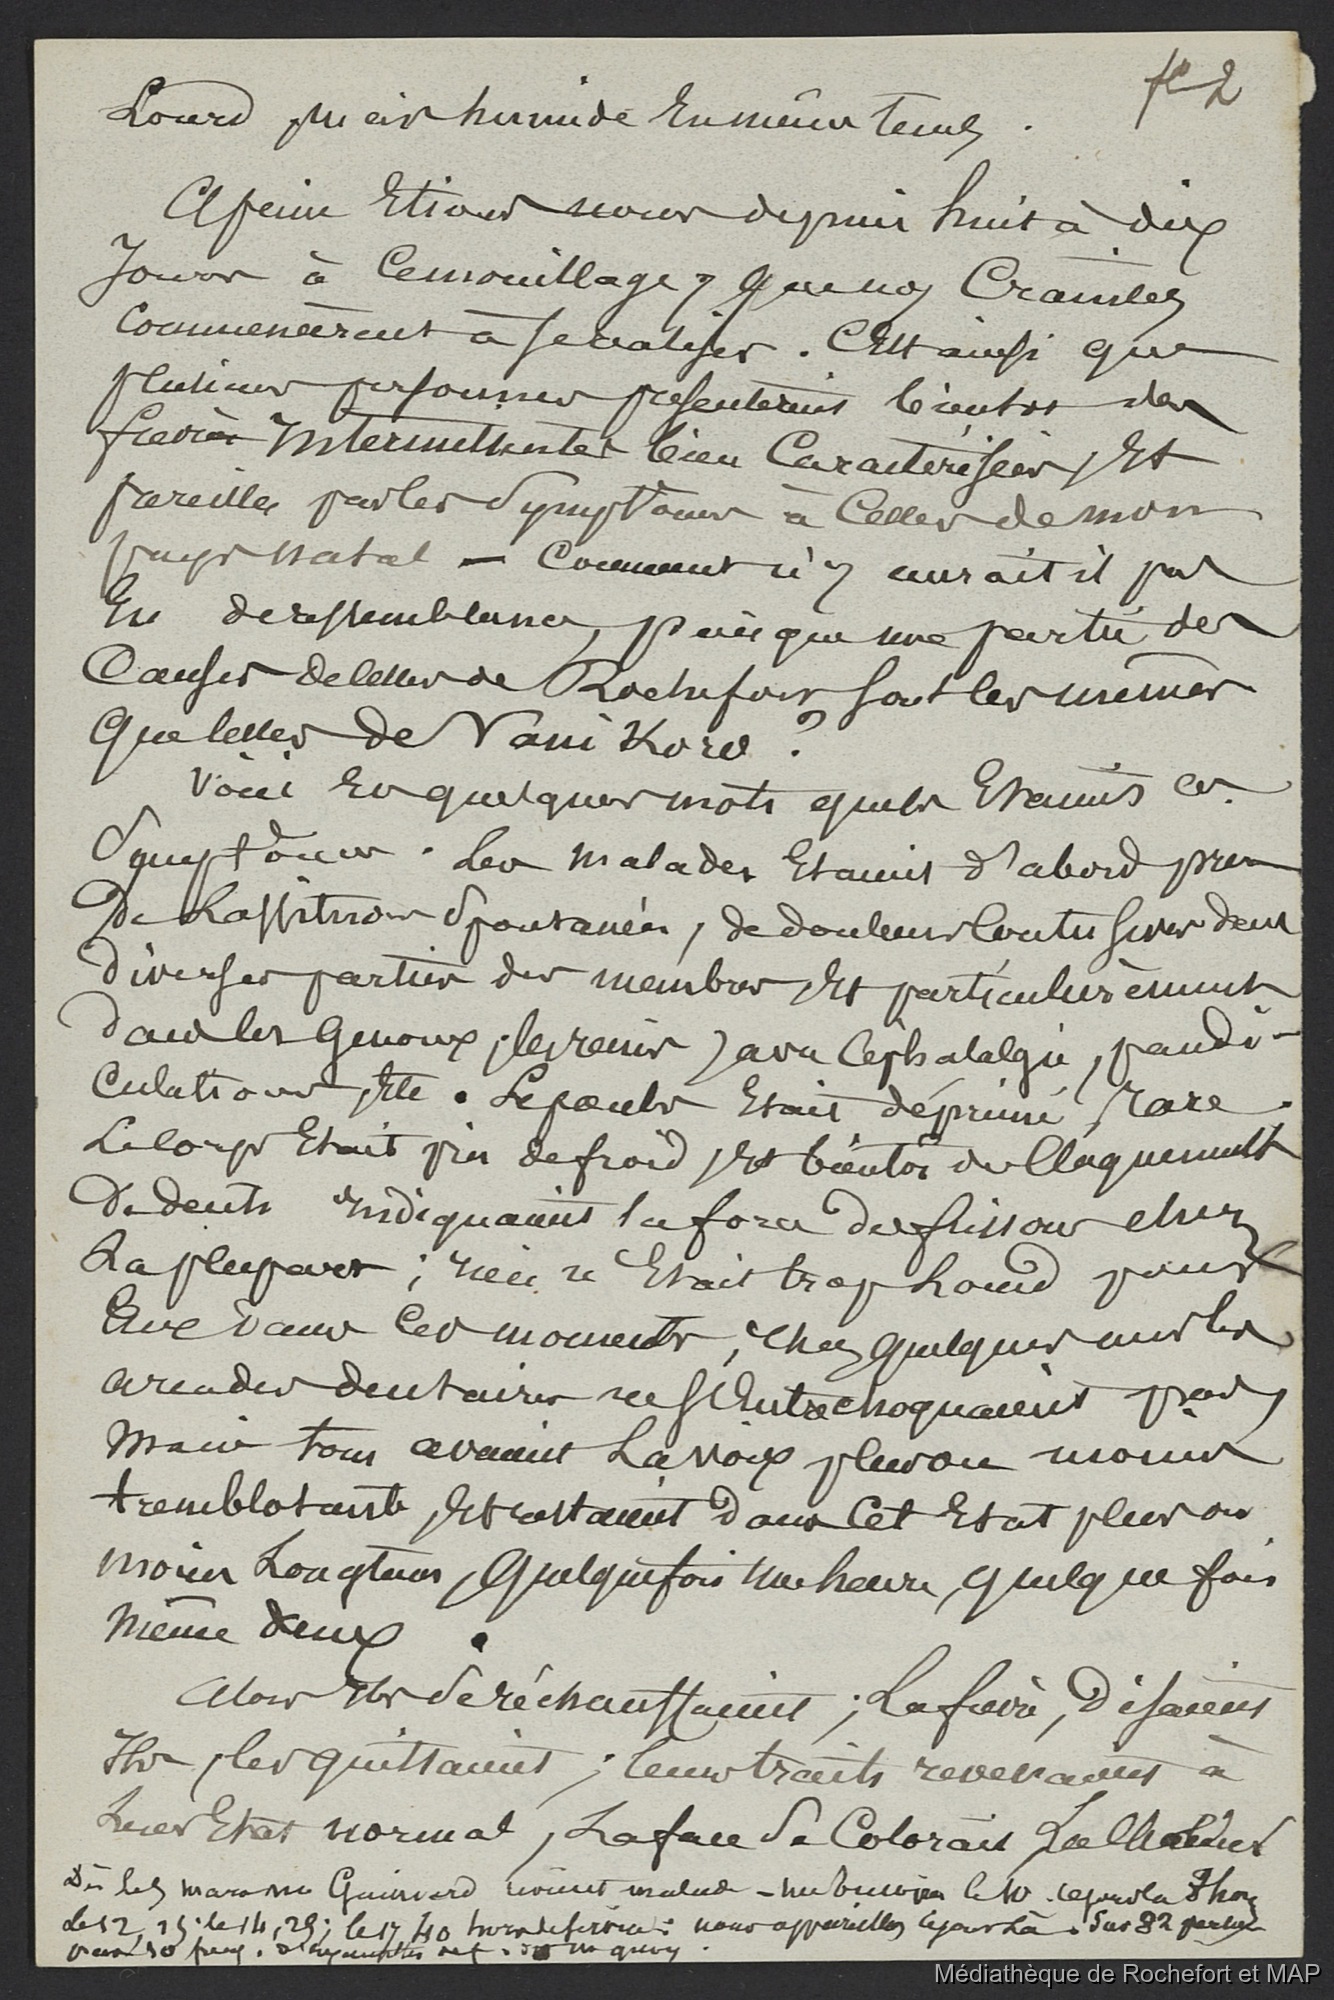 fo 2
Lourd puis humide En même tems .
A peine Etions nous depuis huit à dix
Jours à Cemouillage, que nos Craintes
Commencèrent à Seréaliser . C'Est ainsi que
plusieurs personnes présentèrent bientot des
fievres Intermittentes bien Caractérisées, Et
pareilles par les Symptômes à Celles de mon
pays natal — Comment n'y aurait il pas
Eu deressemblance, puis que une partie des
Causes decelles de Rochefort sont les mêmes
que celles de Vanikoro ?
Voici En quelques mots quels Etaient ces
Symptômes . Les malades Etaient d'abord pris
De Lassitudes Spontanées, de douleurs Contusives dans
diverses parties des membres, Et particulièrement
dans les Genoux, les reins, avec Céphalalgie, pandi-
culations, Etc . Le pouls Etait déprimé, rare .
Le Corps Etait pris defroid, Et bientôt des Claquements
De dents Indiquaient la force des frissons chez
La plupart ; rien n'Etait trop Lourd pour
Eux dans Ces moments, chez quelques uns les
arcades dentaires ne S'Entrechoquaient pas,
Mais tous avaient La voix plus ou moins
tremblotante, Et restaient dans Cet Etat plus ou
moins Longtems, quelquefois Une heure, quelque fois
même deux .
Alors Ils Seréchauffaient ; La fievre, disaient
Ils, les quittaient ; leurs traits revenaient à
Leur Etat normal, La face Se Colorait La Chaleur
le 10
Le 12, ; le 14, 25 ; le 17, 40 hors de service : Sur 82